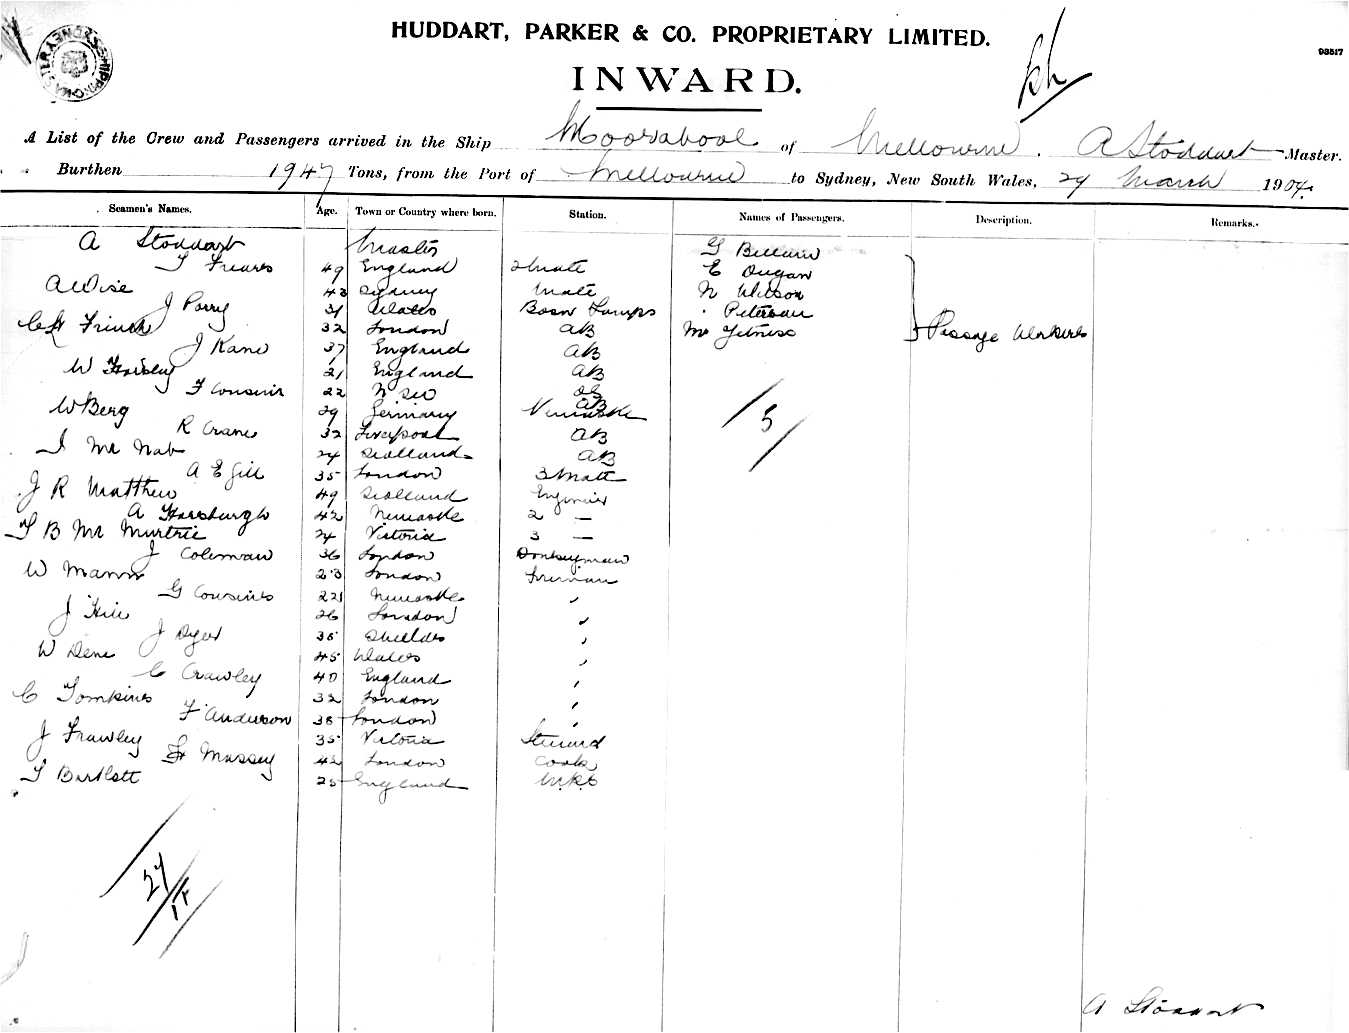 HUDDART, PARKER & CO. PROPRIETARY LIMITED.
98517
INWARD.
A List of the Crew and Passengers arrived in the Ship Moorabool of Melbourne. A Stoddart Master.
Burthen 1947 Tons, from the Port of Melbourne to Sydney, New South Wales, 24 March 1904.
Seamen's Names. Age. Town or Country where born. Station. Names of Passengers. Description. Remarks.
A Stoddart Master G
T 49 England 2 Mate E Dugan
A Wise 43 Sydney Mate N Wilson
J Parry 31 Wales Bosn Lamps Peterson
32 London AB Mr Passage Workers
J Kane 37 England AB
W 21 England AB
F Cousins 22 N S W OS
W Berg 29 Germany AB
R Crane 32 Liverpool AB
Mc Nab 24 Scotland AB
A E Gill 35 London 3 Mate
J R Matthew 49 Scotland Engineer
A Horsburgh 42 Newcastle 2 —
T B Mc Murtrie 24 Victoria 3 —
J Coleman 36 London Donkeyman
W Mann 23 London Fireman
G Cousins 22 Newcastle "
J Hill 26 London "
J Dyer 35 Shields "
W Dene 45 Wales "
C Crawley 40 England "
C Tomkins 32 London "
F Anderson 38 London "
J Frawley 35 Victoria Steward
Massey 42 London Cook
T Bartlett 25 England
5
27
A Stoddart